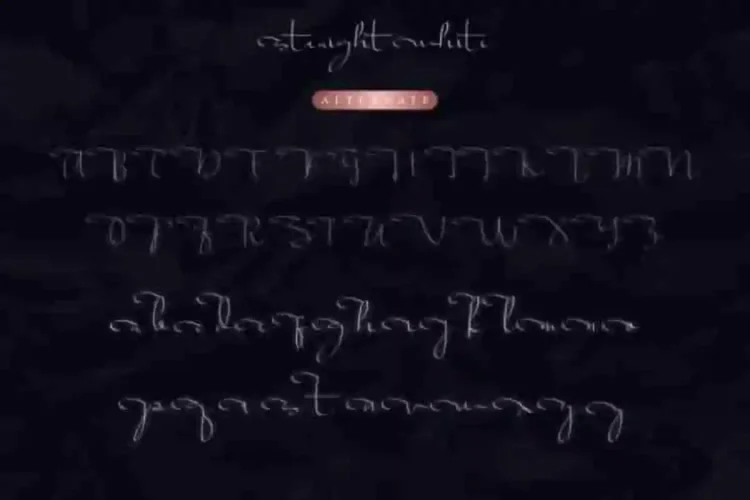 straight white
ALTERNATE
A B C D E F G H I J K L M N
O P Q R S T U V W X Y Z
a b c d e f g h i j k l m n o
p q r s t u v w x y z